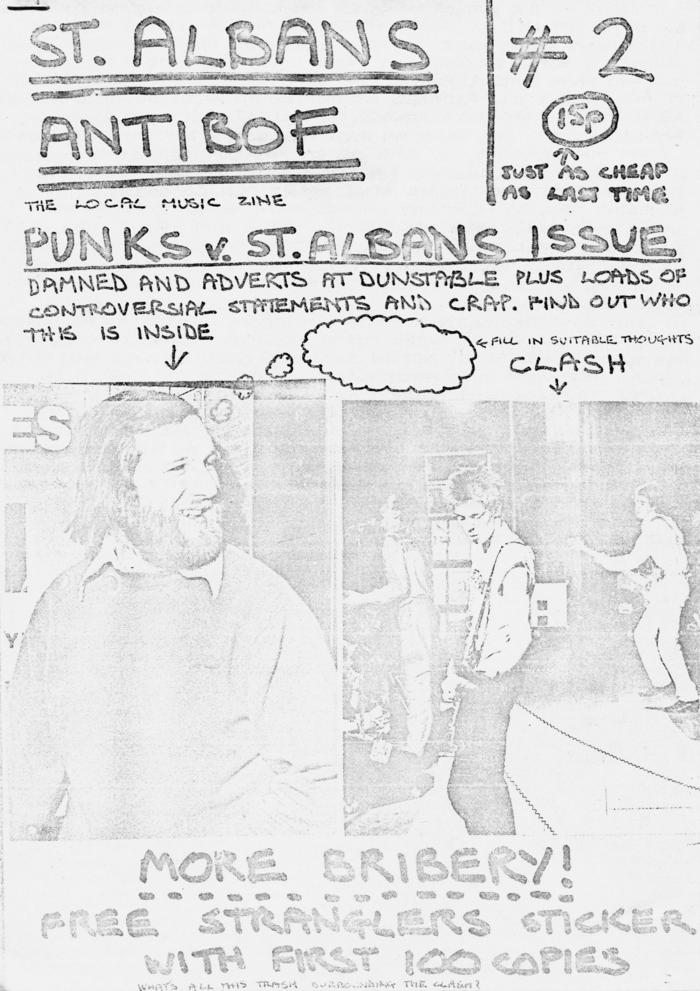 ST. ALBANS
ANTIBOF
THE LOCAL MUSIC ZINE
# 2
15p
JUST AS CHEAP
AS LAST TIME
PUNKS v. ST. ALBANS ISSUE
DAMNED AND ADVERTS AT DUNSTABLE PLUS LOADS OF
CONTROVERSIAL STATEMENTS AND CRAP. FIND OUT WHO
THIS IS INSIDE
FILL IN SUITABLE THOUGHTS
CLASH
ES
Y
MORE BRIBERY!
FREE STRANGLERS STICKER
WITH FIRST 100 COPIES
WHATS ALL THIS TRASH SURROUNDING THE CLASH?